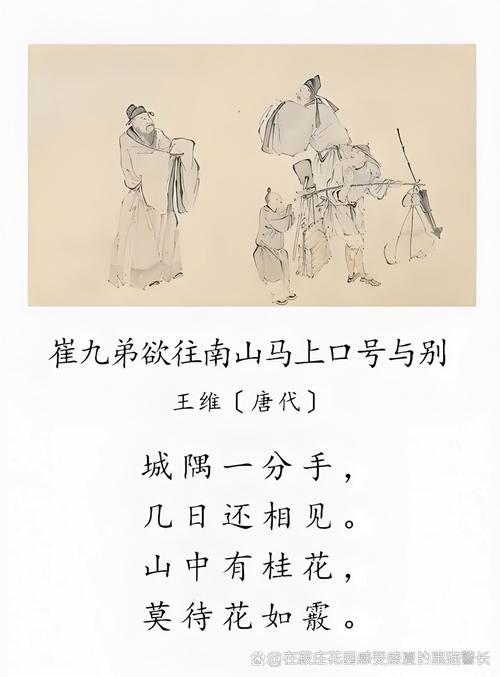 崔九弟欲往南山马上口号与别
王维〔唐代〕
城隅一分手，
几日还相见。
山中有桂花，
莫待花如霰。
@在藏庄花园感受盛夏的黑猫警长